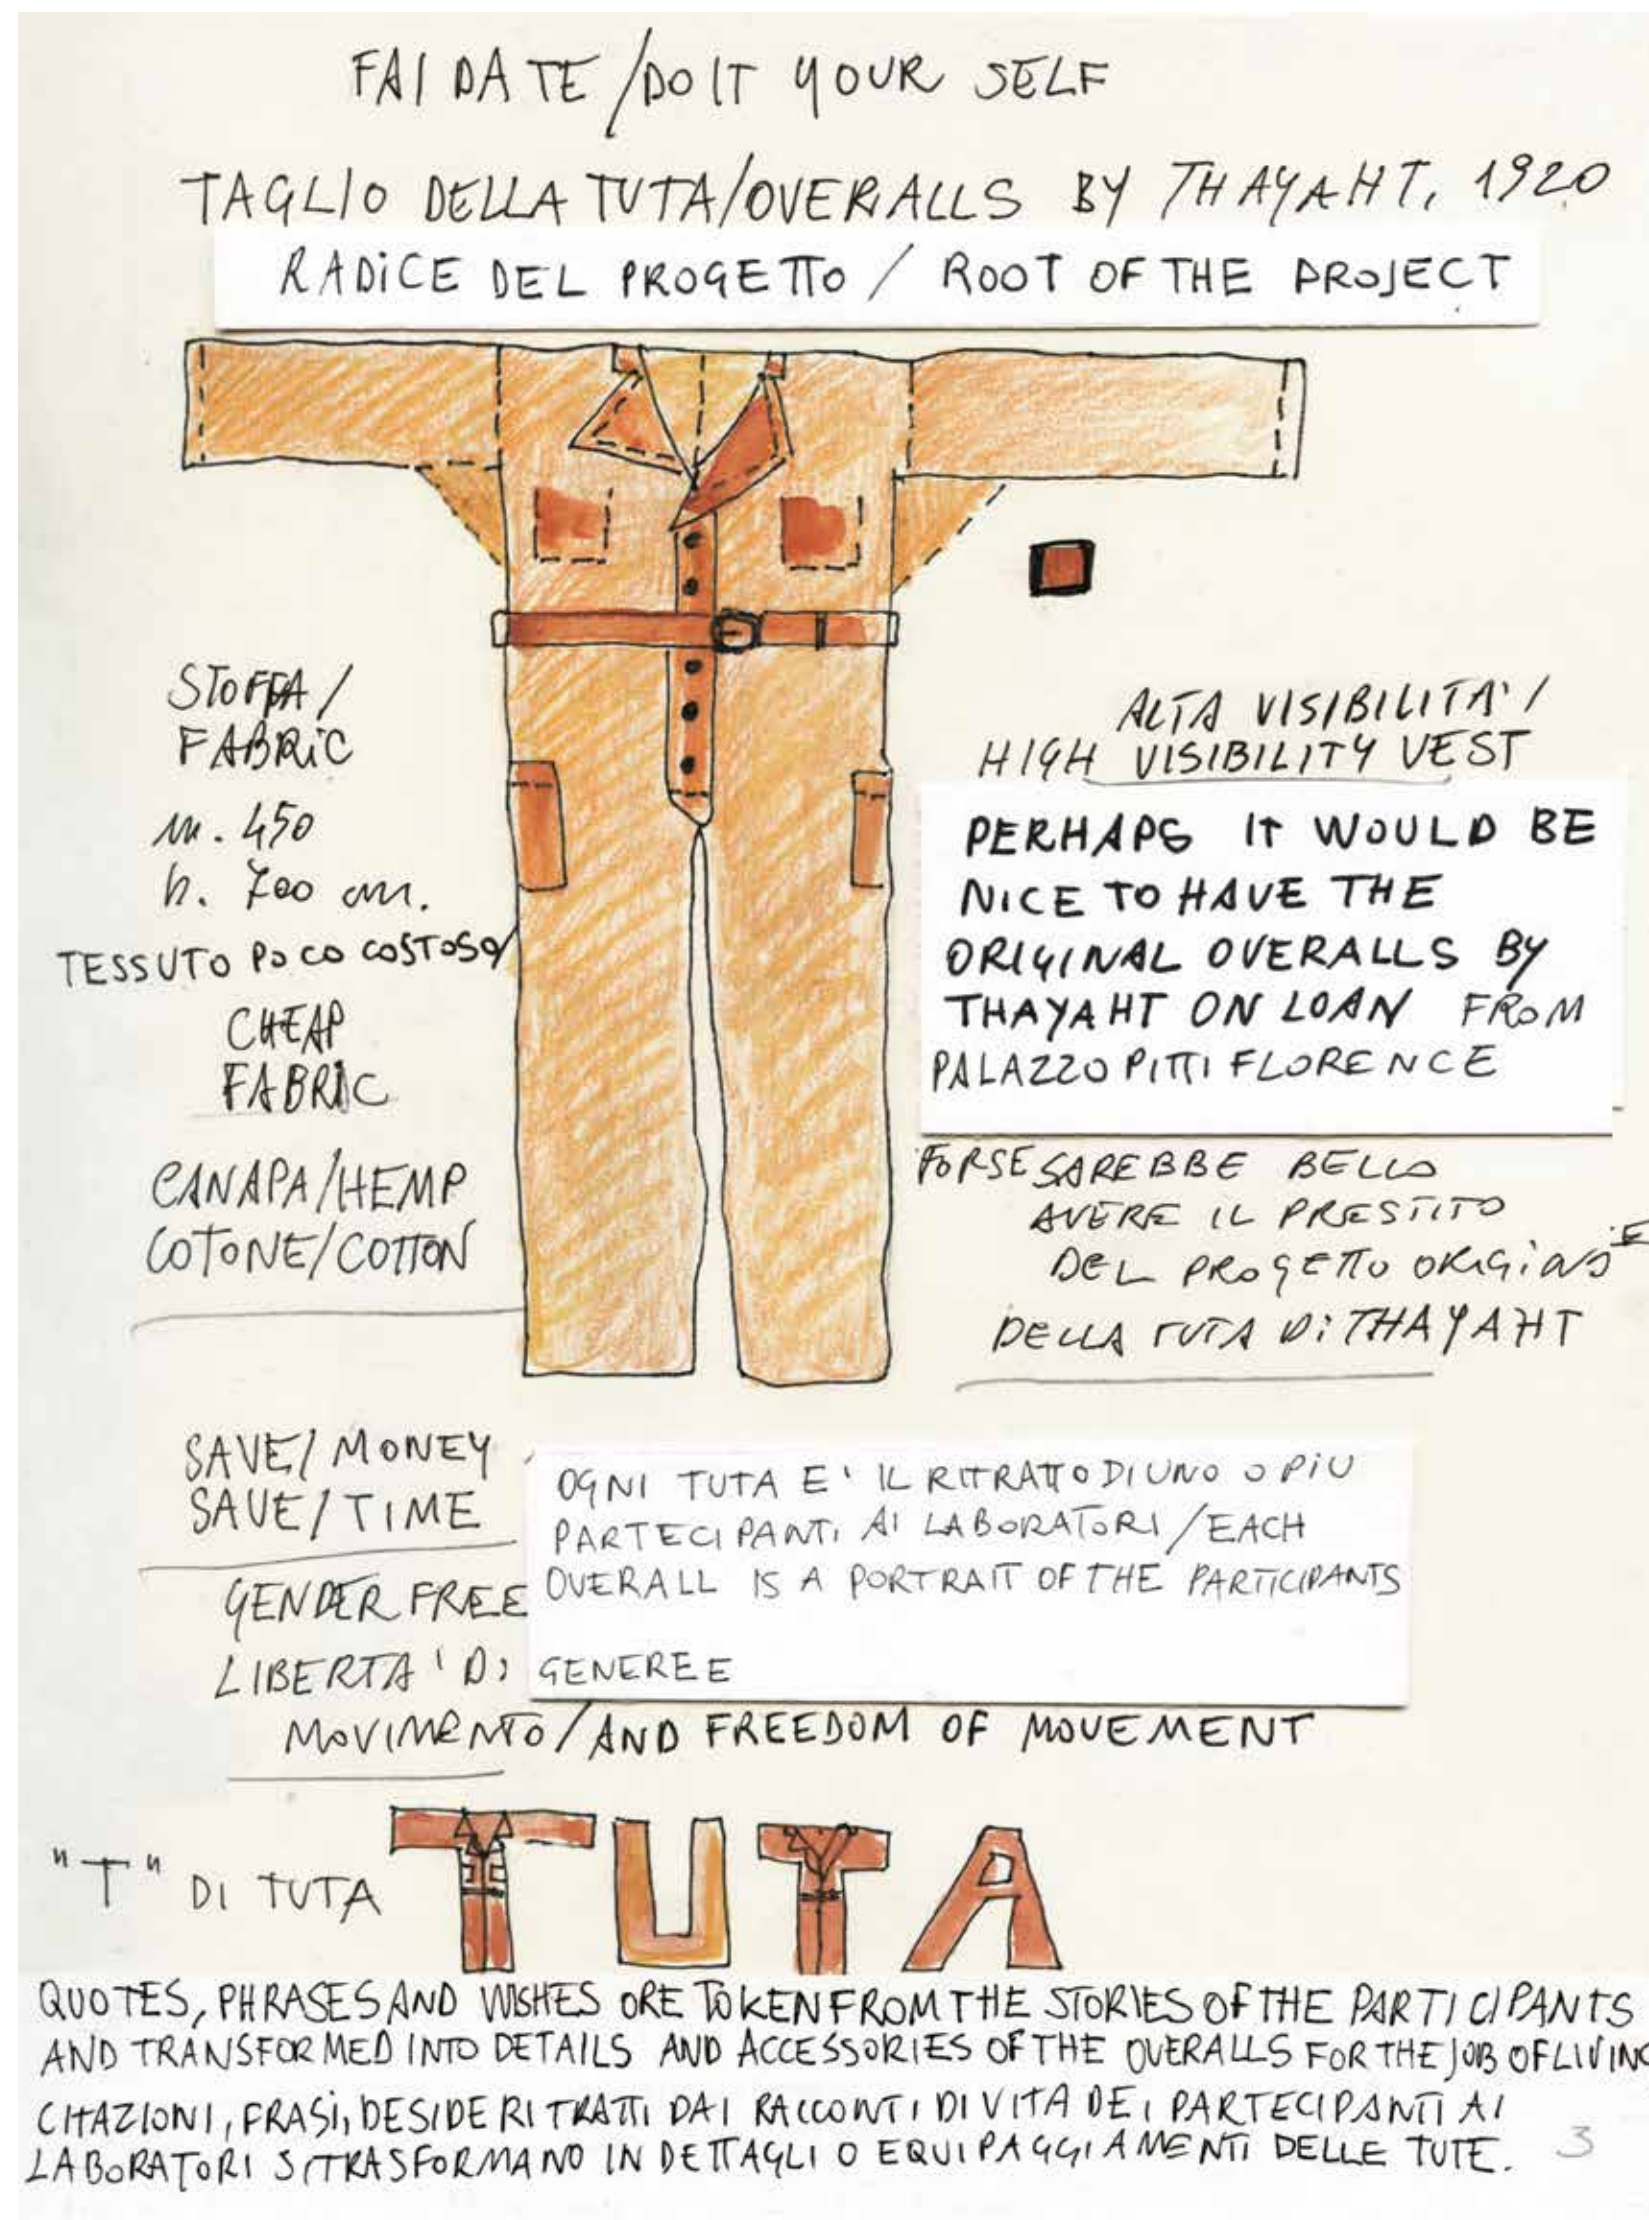 FAI DA TE / DO IT YOUR SELF
TAGLIO DELLA TUTA/OVERALLS BY THAYAHT, 1920
RADICE DEL PROGETTO / ROOT OF THE PROJECT
STOFFA /
FABRIC
m. 450
h. 700 cm.
TESSUTO POCO COSTOSO/
CHEAP
FABRIC
CANAPA/HEMP
COTONE/COTTON
ALTA VISIBILITA' /
HIGH VISIBILITY VEST
PERHAPS IT WOULD BE
NICE TO HAVE THE
ORIGINAL OVERALLS BY
THAYAHT ON LOAN FROM
PALAZZO PITTI FLORENCE
FORSE SAREBBE BELLO
AVERE IL PRESTITO
DEL PROGETTO
DELLA TUTA DI THAYAHT
SAVE/ MONEY
SAVE/TIME
OGNI TUTA E' IL RITRATTO DI UNO O PIU
PARTECIPANTI AI LABORATORI / EACH
OVERALL IS A PORTRAIT OF THE PARTICIPANTS
GENDER FREE
LIBERTA' DI GENERE E
MOVIMENTO / AND FREEDOM OF MOVEMENT
"T" DI TUTA TUTA
QUOTES, PHRASES AND WISHES ORE TOKEN FROM THE STORIES OF THE PARTICIPANTS
AND TRANSFORMED INTO DETAILS AND ACCESSORIES OF THE OVERALLS FOR THE JOB OF LIVING
CITAZIONI, FRASI, DESIDERI TRATTI DAI RACCONTI DI VITA DEI PARTECIPANTI AI
LABORATORI SI TRASFORMANO IN DETTAGLI O EQUIPAGGIAMENTI DELLE TUTE. 3